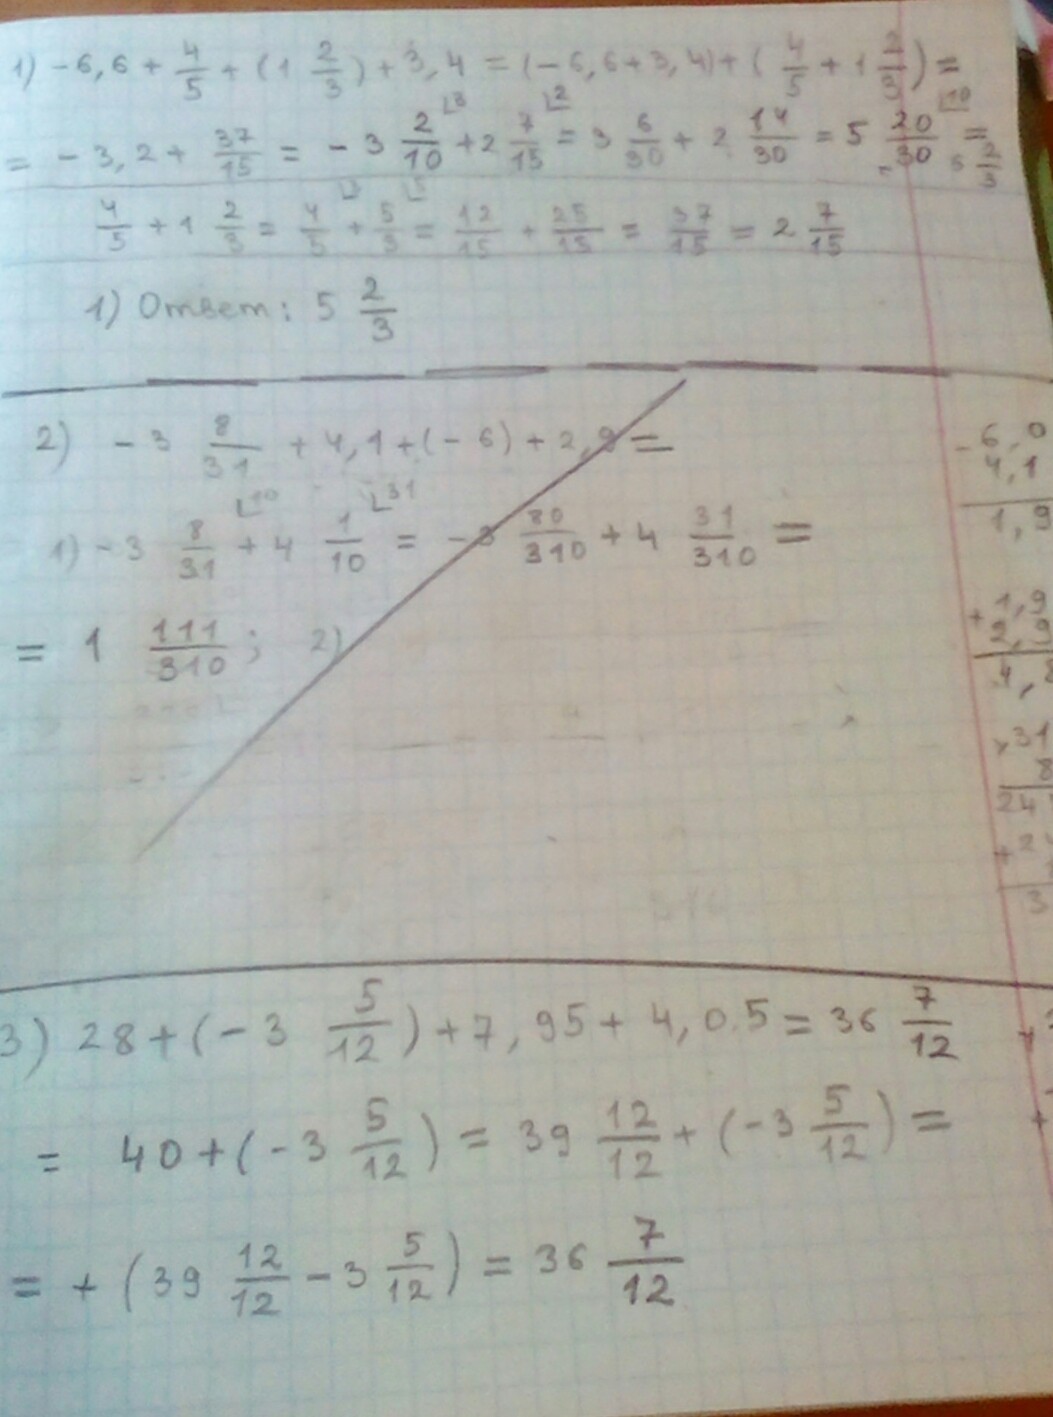 1) -6,6 + 4/5 + (1 2/3) + 3,4 = (-6,6+3,4) + (4/5 + 1 2/3) =
= -3,2 + 37/15 = -3 2/10 ⌊3 + 2 7/15 ⌊2 = 3 6/30 + 2 14/30 = 5 20/30 ⌊10 = 5 2/3
4/5 ⌊3 + 1 2/3 = 4/5 + 5/3 ⌊5 = 12/15 + 25/15 = 37/15 = 2 7/15
1) Ответ: 5 2/3
2) -3 8/31 + 4,1 + (-6) + 2,9 =
1) -3 8/31 ⌊10 + 4 1/10 ⌊31 = -3 80/310 + 4 31/310 =
= 1 111/310; 2)
- 6,0
4,1
1,9
+ 1,9
2,9
4,8
× 31
8
24
3) 28 + (-3 5/12) + 7,95 + 4,05 = 36 7/12
= 40 + (-3 5/12) = 39 12/12 + (-3 5/12) =
= + (39 12/12 - 3 5/12) = 36 7/12